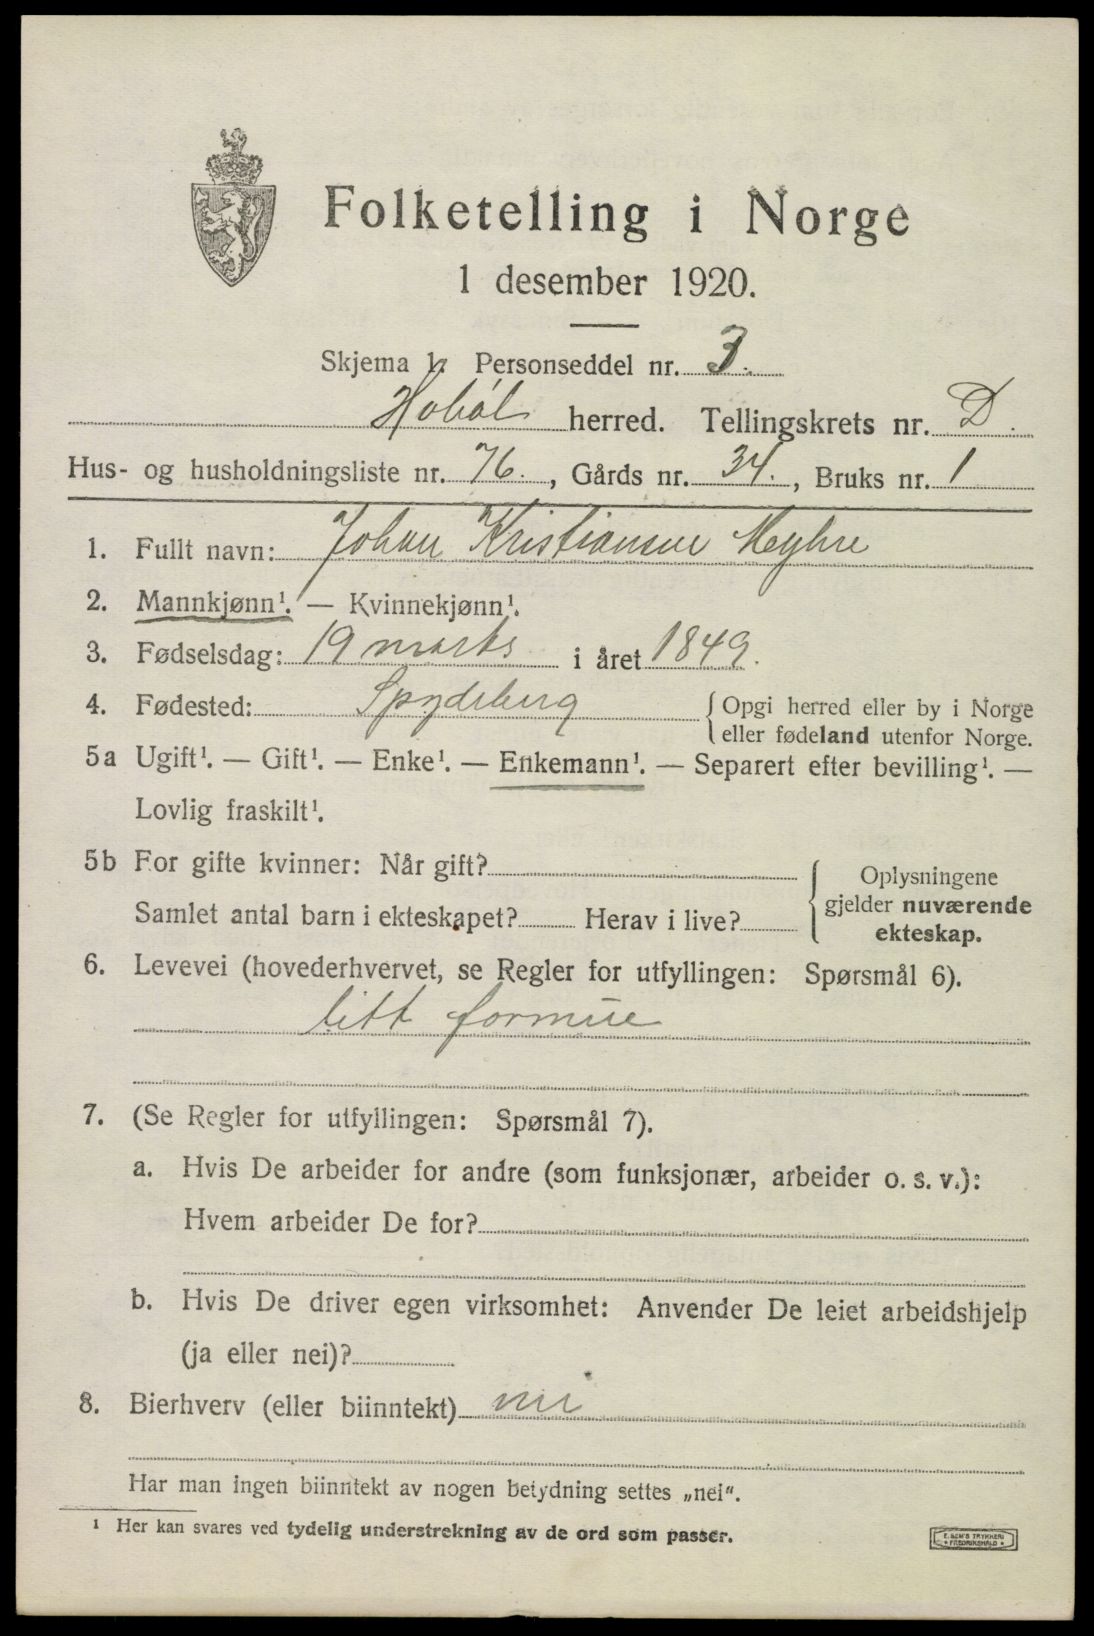 Folketelling i Norge
1 desember 1920.
Skjema 1. Personseddel nr. 3.
Hobøl herred. Tellingskrets nr. D.
Hus- og husholdningsliste nr. 76., Gårds nr. 34., Bruks nr. 1
1. Fullt navn: Johan Kristiansen Myhre
2. Mannkjønn¹. — Kvinnekjønn¹.
3. Fødselsdag: 19 marts i året 1849.
4. Fødested: Spydeberg {Opgi herred eller by i Norge
eller fødeland utenfor Norge.
5a Ugift¹. — Gift¹. — Enke¹. — Enkemann¹. — Separert efter bevilling¹. —
Lovlig fraskilt¹.
5b For gifte kvinner: Når gift?
Samlet antal barn i ekteskapet? Herav i live?
{Oplysningene
gjelder nuværende
ekteskap.
6. Levevei (hovederhvervet, se Regler for utfyllingen: Spørsmål 6).
litt formue
7. (Se Regler for utfyllingen: Spørsmål 7).
a. Hvis De arbeider for andre (som funksjonær, arbeider o. s. v.):
Hvem arbeider De for?
b. Hvis De driver egen virksomhet: Anvender De leiet arbeidshjelp
(ja eller nei)?
8. Bierhverv (eller biinntekt) nei
Har man ingen biinntekt av nogen betydning settes „nei".
¹ Her kan svares ved tydelig understrekning av de ord som passer.
E. SEM'S TRYKKERI
• FREDRIKSHALD •